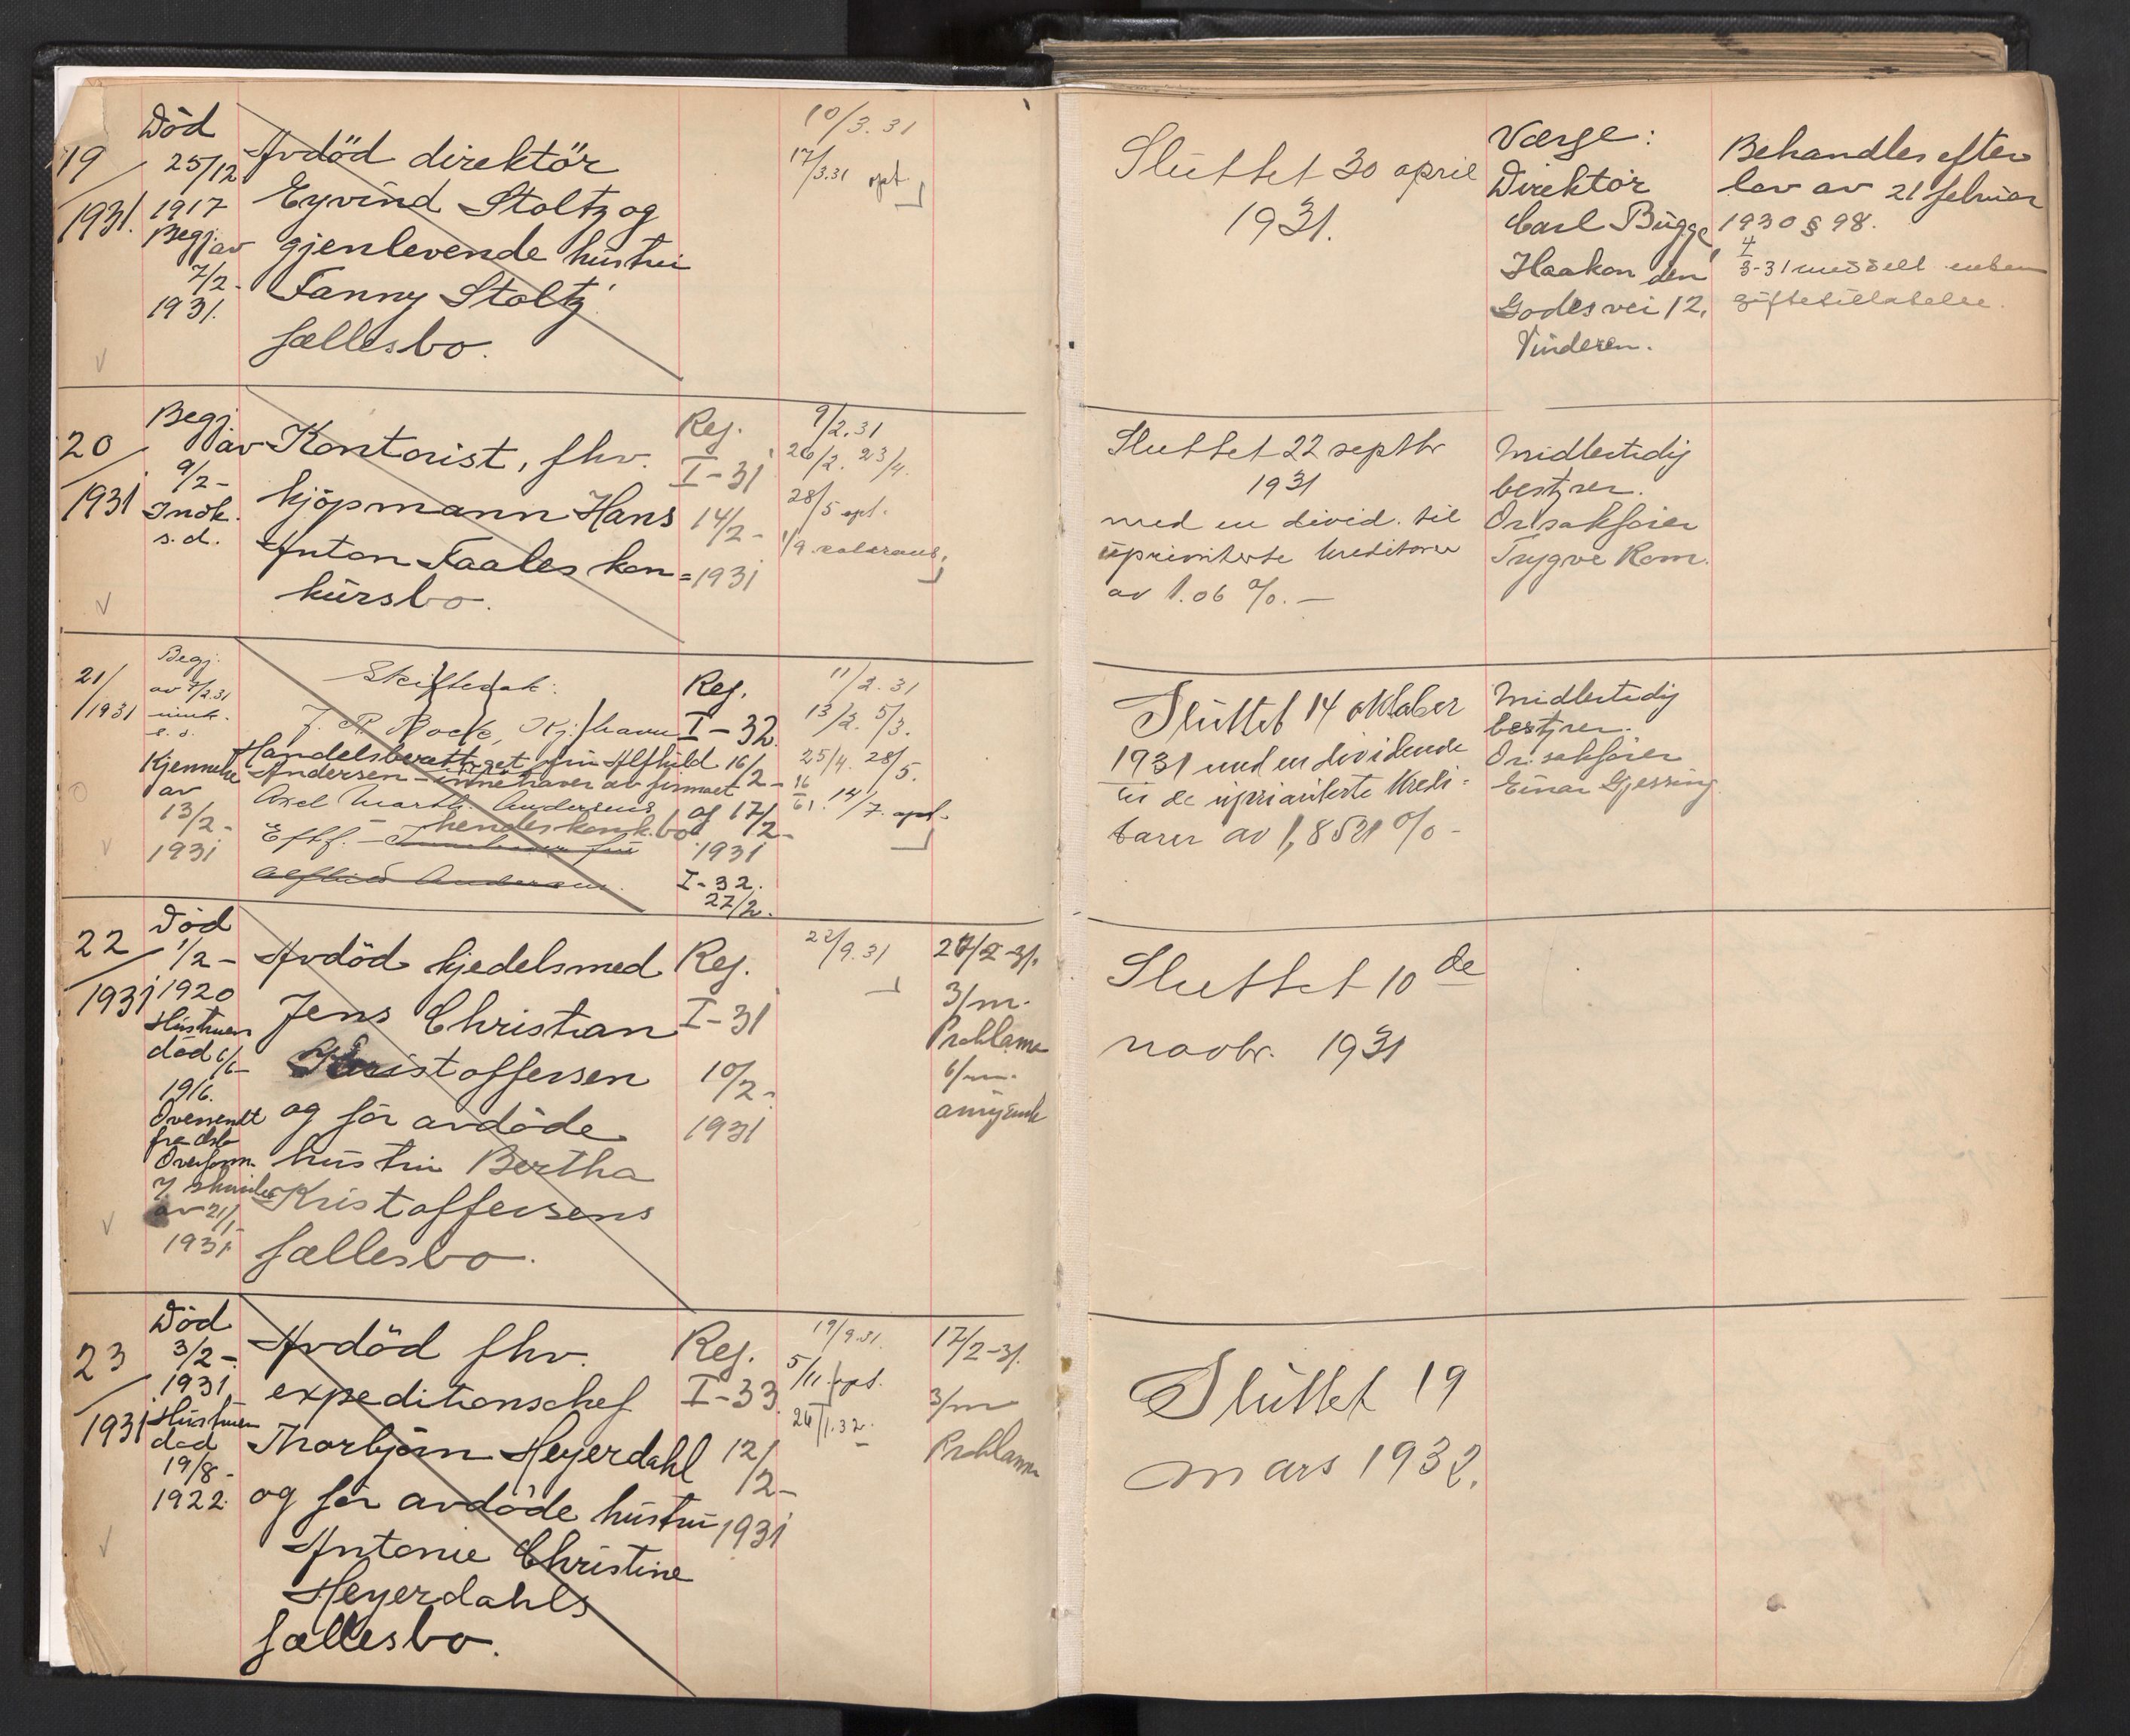 19/1931.
Död
25/12
1917
Begj. av
7/2-
1931.
Avdöd direktör
Eyvind Stoltz og
gjenlevende hustru
Fanny Stoltz'
fællesbo.
10/3. 31
17/3.31 opt.
Sluttet 30 april
1931.
Værge:
Direktör
Carl Bugge,
Haakon den
Godes vei 12,
Vinderen.
Behandles efter
lov av 21 februar
1930 § 98.
20/1931
Begj.
av
9/2-
Innk.
s.d.
Kontorist, fhv.
kjöpmann Hans
Anton Faales kon=
kursbo.
Reg.
I-31
14/2-
1931
9/2.31
26/2. 23/4.
28/5 opt.
Sluttet 22 septbr
1931
med en divid. til
uprioriterte kreditorer
av 1.06 %. —
Midlertidig
bestyrer.
Or.sakförer
Trygve Rom.
21/1931
Begj.
av 7/2.31
innk.
s.d.
Kjennelse
av
13/2-
1931
Skiftesak:
Handelsberettiget fru Alfhild
Andersen - innehaver av firmaet
Axel Marth. Andersens
Eftf. - hendes konk.bo
Reg.
I-32
16/2-
og 17/2-
1931
I-32.
27/2.
11/2.31
13/2. 5/3.
25/4. 28/5.
14/7. opt.
Sluttet 14 oktober
1931 med en dividende
til de uprioriterte kredi=
torer av 1,8521 % -
Midlertidig
bestyrer.
Or.sakförer
Einar Gjessing
22/1931
Död
1/2-
1920
Hustruen
död 6/6-
1916.
Oversendt
fra Oslo
Overform.
av 21/1-
1931
Avdöd kjedelsmed
Jens Christian
Kristoffersen
og för avdöde
hustru Bertha
Kristoffersens
fællesbo.
Reg.
I-31
10/2-
1931
22/9.31
27/2-31.
3/m.
Proklama
6/m.
Sluttet 10de
novbr. 1931
23/1931
Död
3/2-
1931
Hustruen
död
19/8-
1922.
Avdöd fhv.
expeditionschef
Thorbjörn Heyerdahl
og för avdöde hustru
Antonie Christine
Heyerdahls
fællesbo.
Reg.
I-33
12/2-
1931
19/9.31
5/11 opt.
26/1.32.
17/2-31.
3/m
Proklama
Sluttet 19
mars 1932.